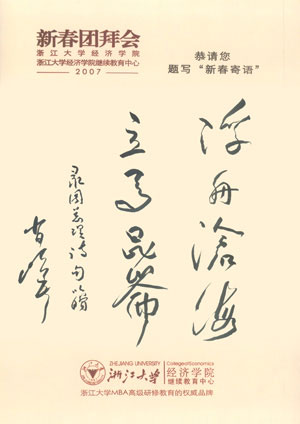 新春团拜会
浙江大学经济学院
浙江大学经济学院继续教育中心
2007
恭请您
题写“新春寄语”
浮舟滄海
立马昆崙
录周总理诗句以赠
ZHEJIANG UNIVERSITY
浙江大学
College of Economics
经济学院
继续教育中心
浙江大学MBA高级研修教育的权威品牌